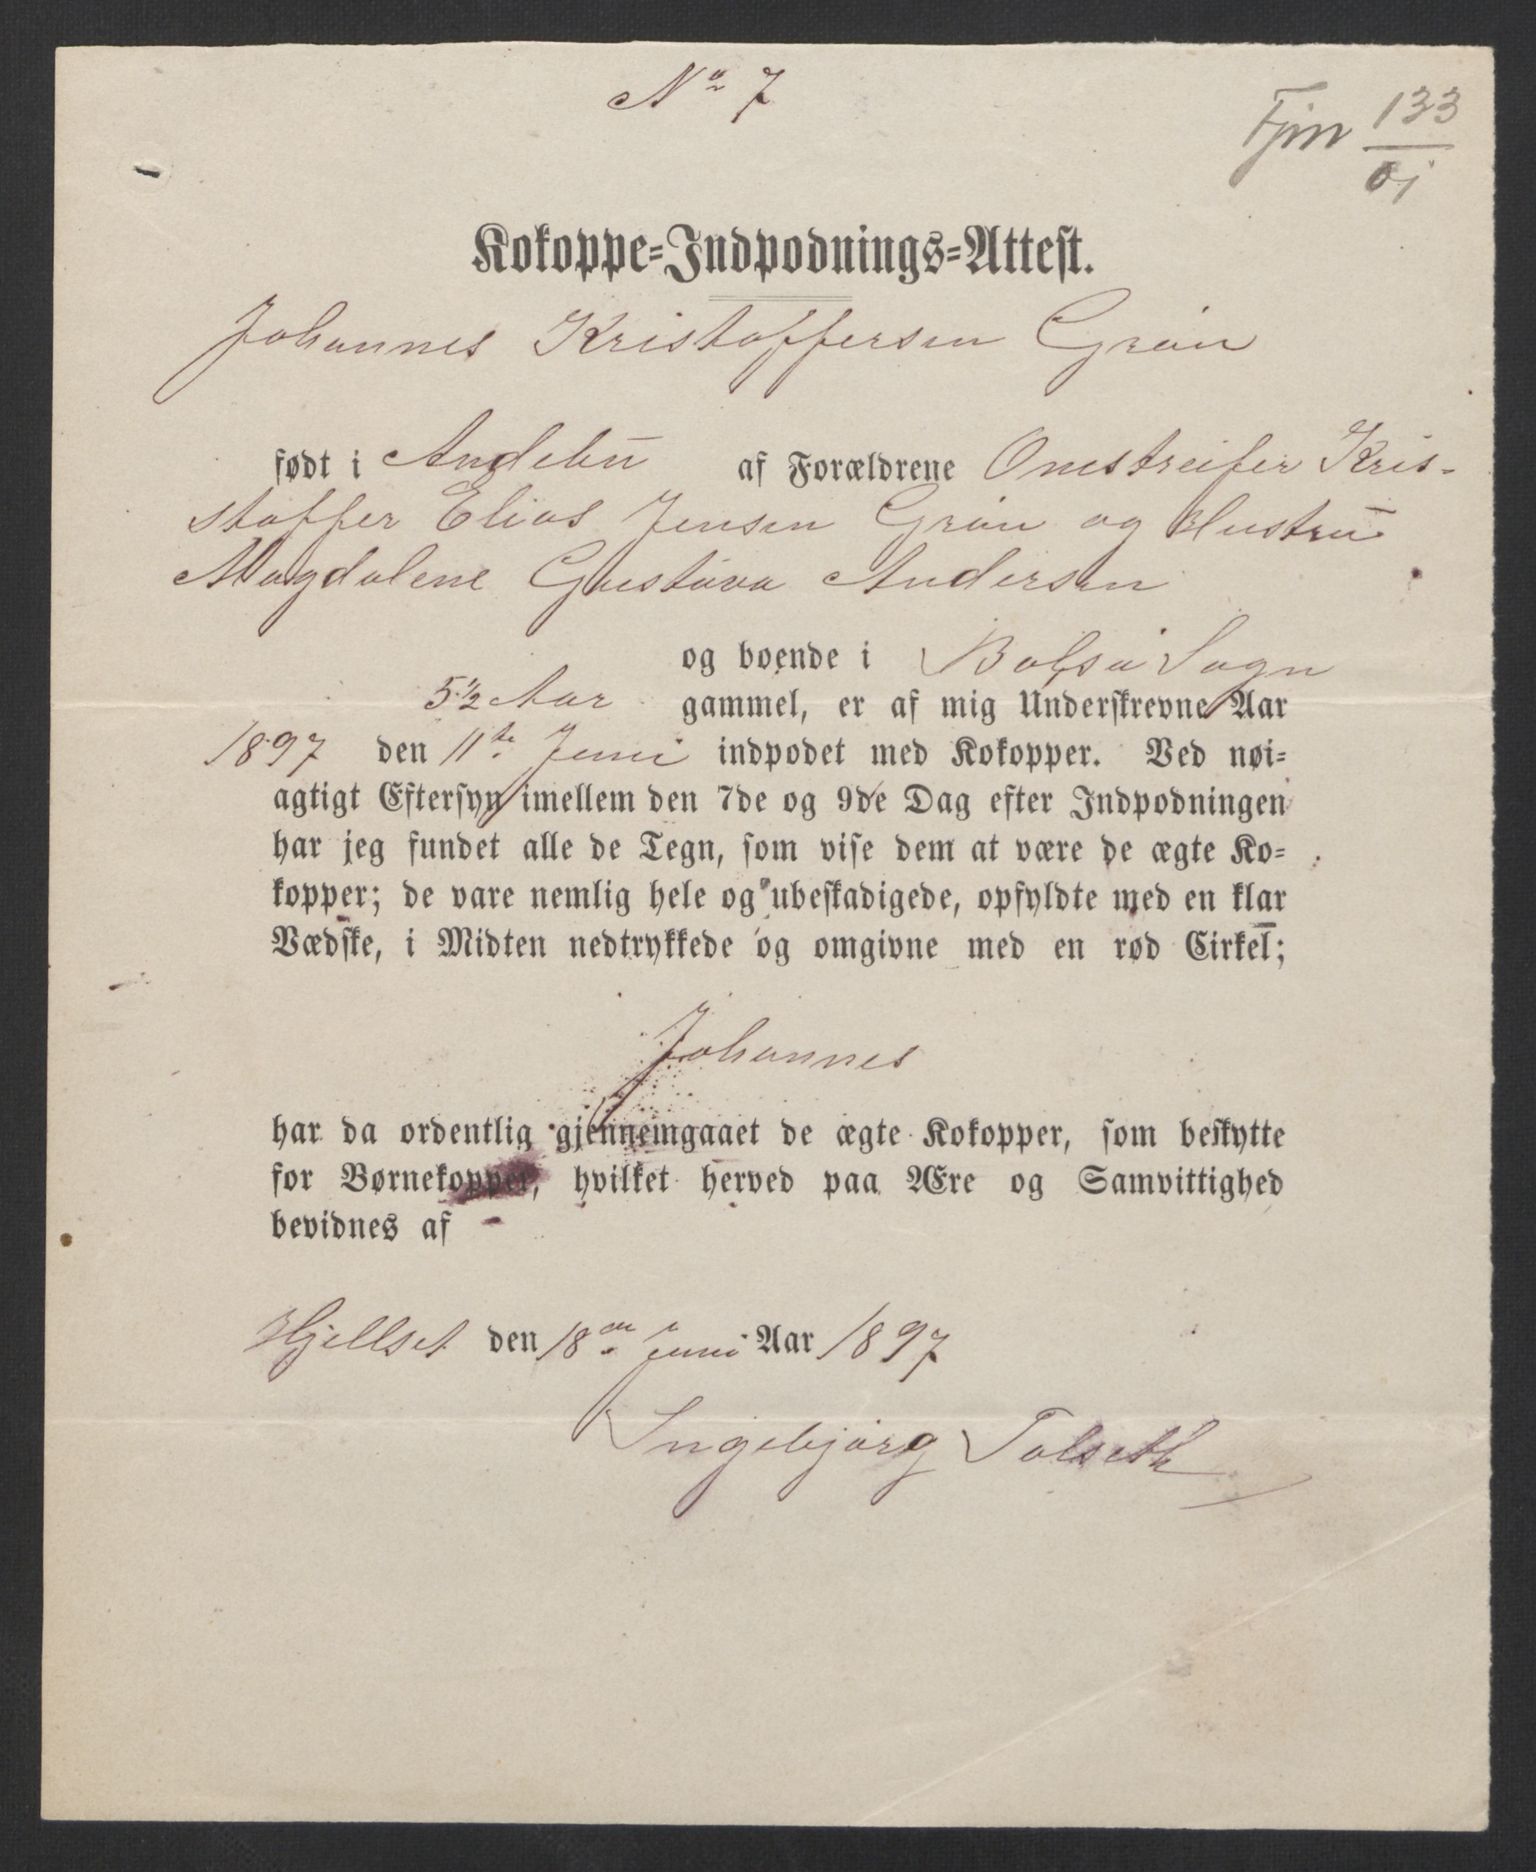 No 7
Fjm 133
01
Kokoppe-Indpodnings-Attest.
Johannes Kristoffersen Grøn
født i Andebu af Forældrene Omstreifer Kris-
stoffer Elias Jensen Grøn og Hustru
Magdalene Gustava Andersen
og boende i Bolsø Sogn
5 1/2 Aar gammel, er af mig Underskrevne Aar
1897 den 11te Juni indpodet med Kokopper. Ved nøi-
agtigt Eftersyn imellem den 7de og 9de Dag efter Indpodningen
har jeg fundet alle de Tegn, som vise dem at være de ægte Ko-
kopper; de vare nemlig hele og ubeskadigede, opfyldte med en klar
Vædske, i Midten nedtrykkede og omgivne med en rød Cirkel;
Johannes
har da ordentlig gjennemgaaet de ægte Kokopper, som beskytte
for Børnekopper, hvilket herved paa Ære og Samvittighed
bevidnes af
Hjellset den 18de Juni Aar 1897
Ingebjørg Tolseth